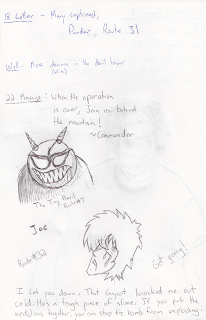 18 Letter - Many captioned,
Ponder, Route 31
Wed - More demons - No devil lover
22 Missing: When the operation
is over, Join us behind
the mountain!
~Commander
The Tiny Devil
Joe
Route #32
Get going!
I let you down. That Gayout knocked me out
cold. He's a tough piece of slime. If you put the
medallions together, you can stop the bombs from exploding.